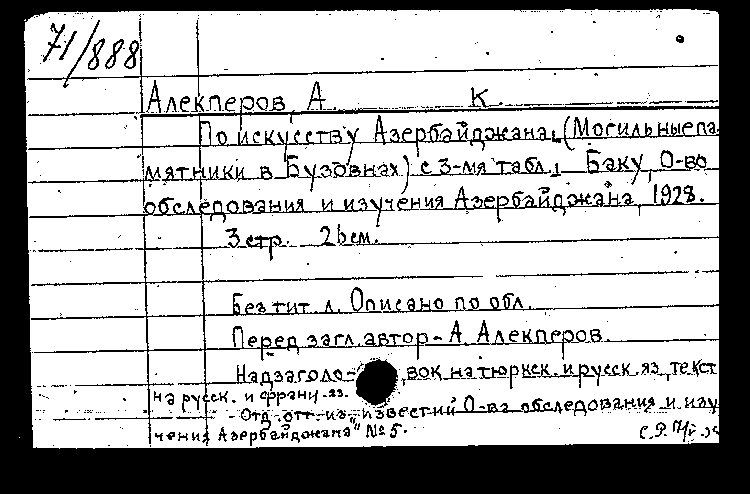 71/888
Алекперов, А. К.
По искусству Азербайджана. (Могильные па-
мятники в Бузовнах) с 3-мя табл. Баку, О-во
обследования и изучения Азербайджана, 1928.
3 стр. 26 см.
Без тит. л. Описано по обл.
Перед загл. автор - А. Алекперов.
Надзаголо- вок на тюркск. и русск. яз, текст
на русск. и франц. яз.
- Отд. отт. из „известий О-ва обследования и изу
чения Азербайджана" № 5.